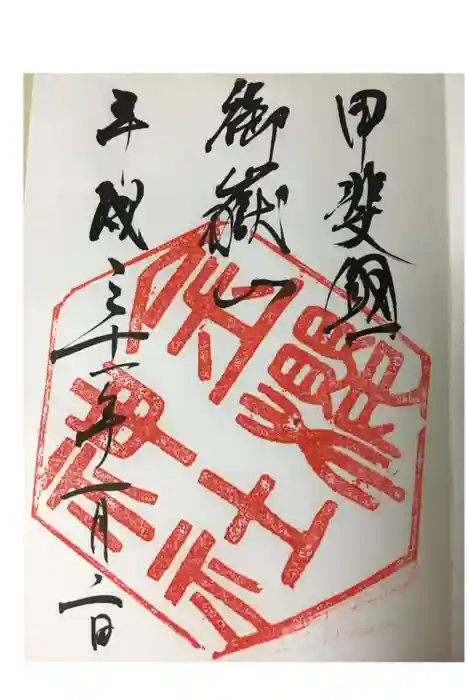 甲斐國
御嶽山
平成三十一年一月二日
金櫻神社